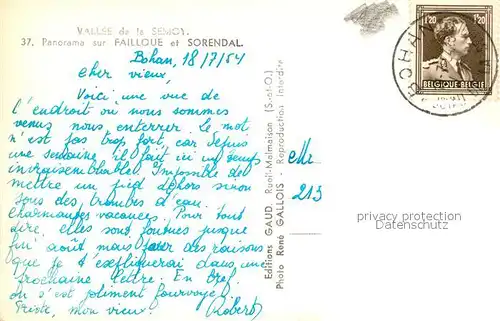 VALLÉE de la SEMOY.
37. Panorama sur FAILLOUE et SORENDAL.
Bohan, 18/7/54
Cher vieux,
Voici une vue de
l'endroit où nous sommes
venus nous enterrer. Le mot
n'est pas trop fort, car depuis
une semaine il fait ici un temps
invraisemblable. Impossible de
mettre un pied dehors sinon
sous des trombes d'eau.
Charmantes vacances. Pour tout
dire, elles sont foutues jusque
fin août mais pour des raisons
que je t'expliquerai dans une
prochaine lettre. En bref
on s'est pliment fourvoyé
Triste, mon vieux! Robert
Editions GAUD. Rueil-Malmaison (S.-et-O.)
Photo René GALLOIS - Reproduction Interdite
1F20 1F20
BELGIQUE-BELGIË
BOHAN
Elle
213
privacy protection
Datenschutz